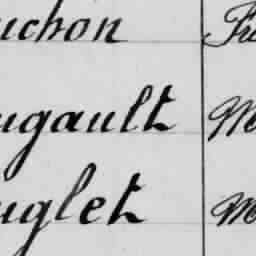 uchon Fr
ugault M
uglet M